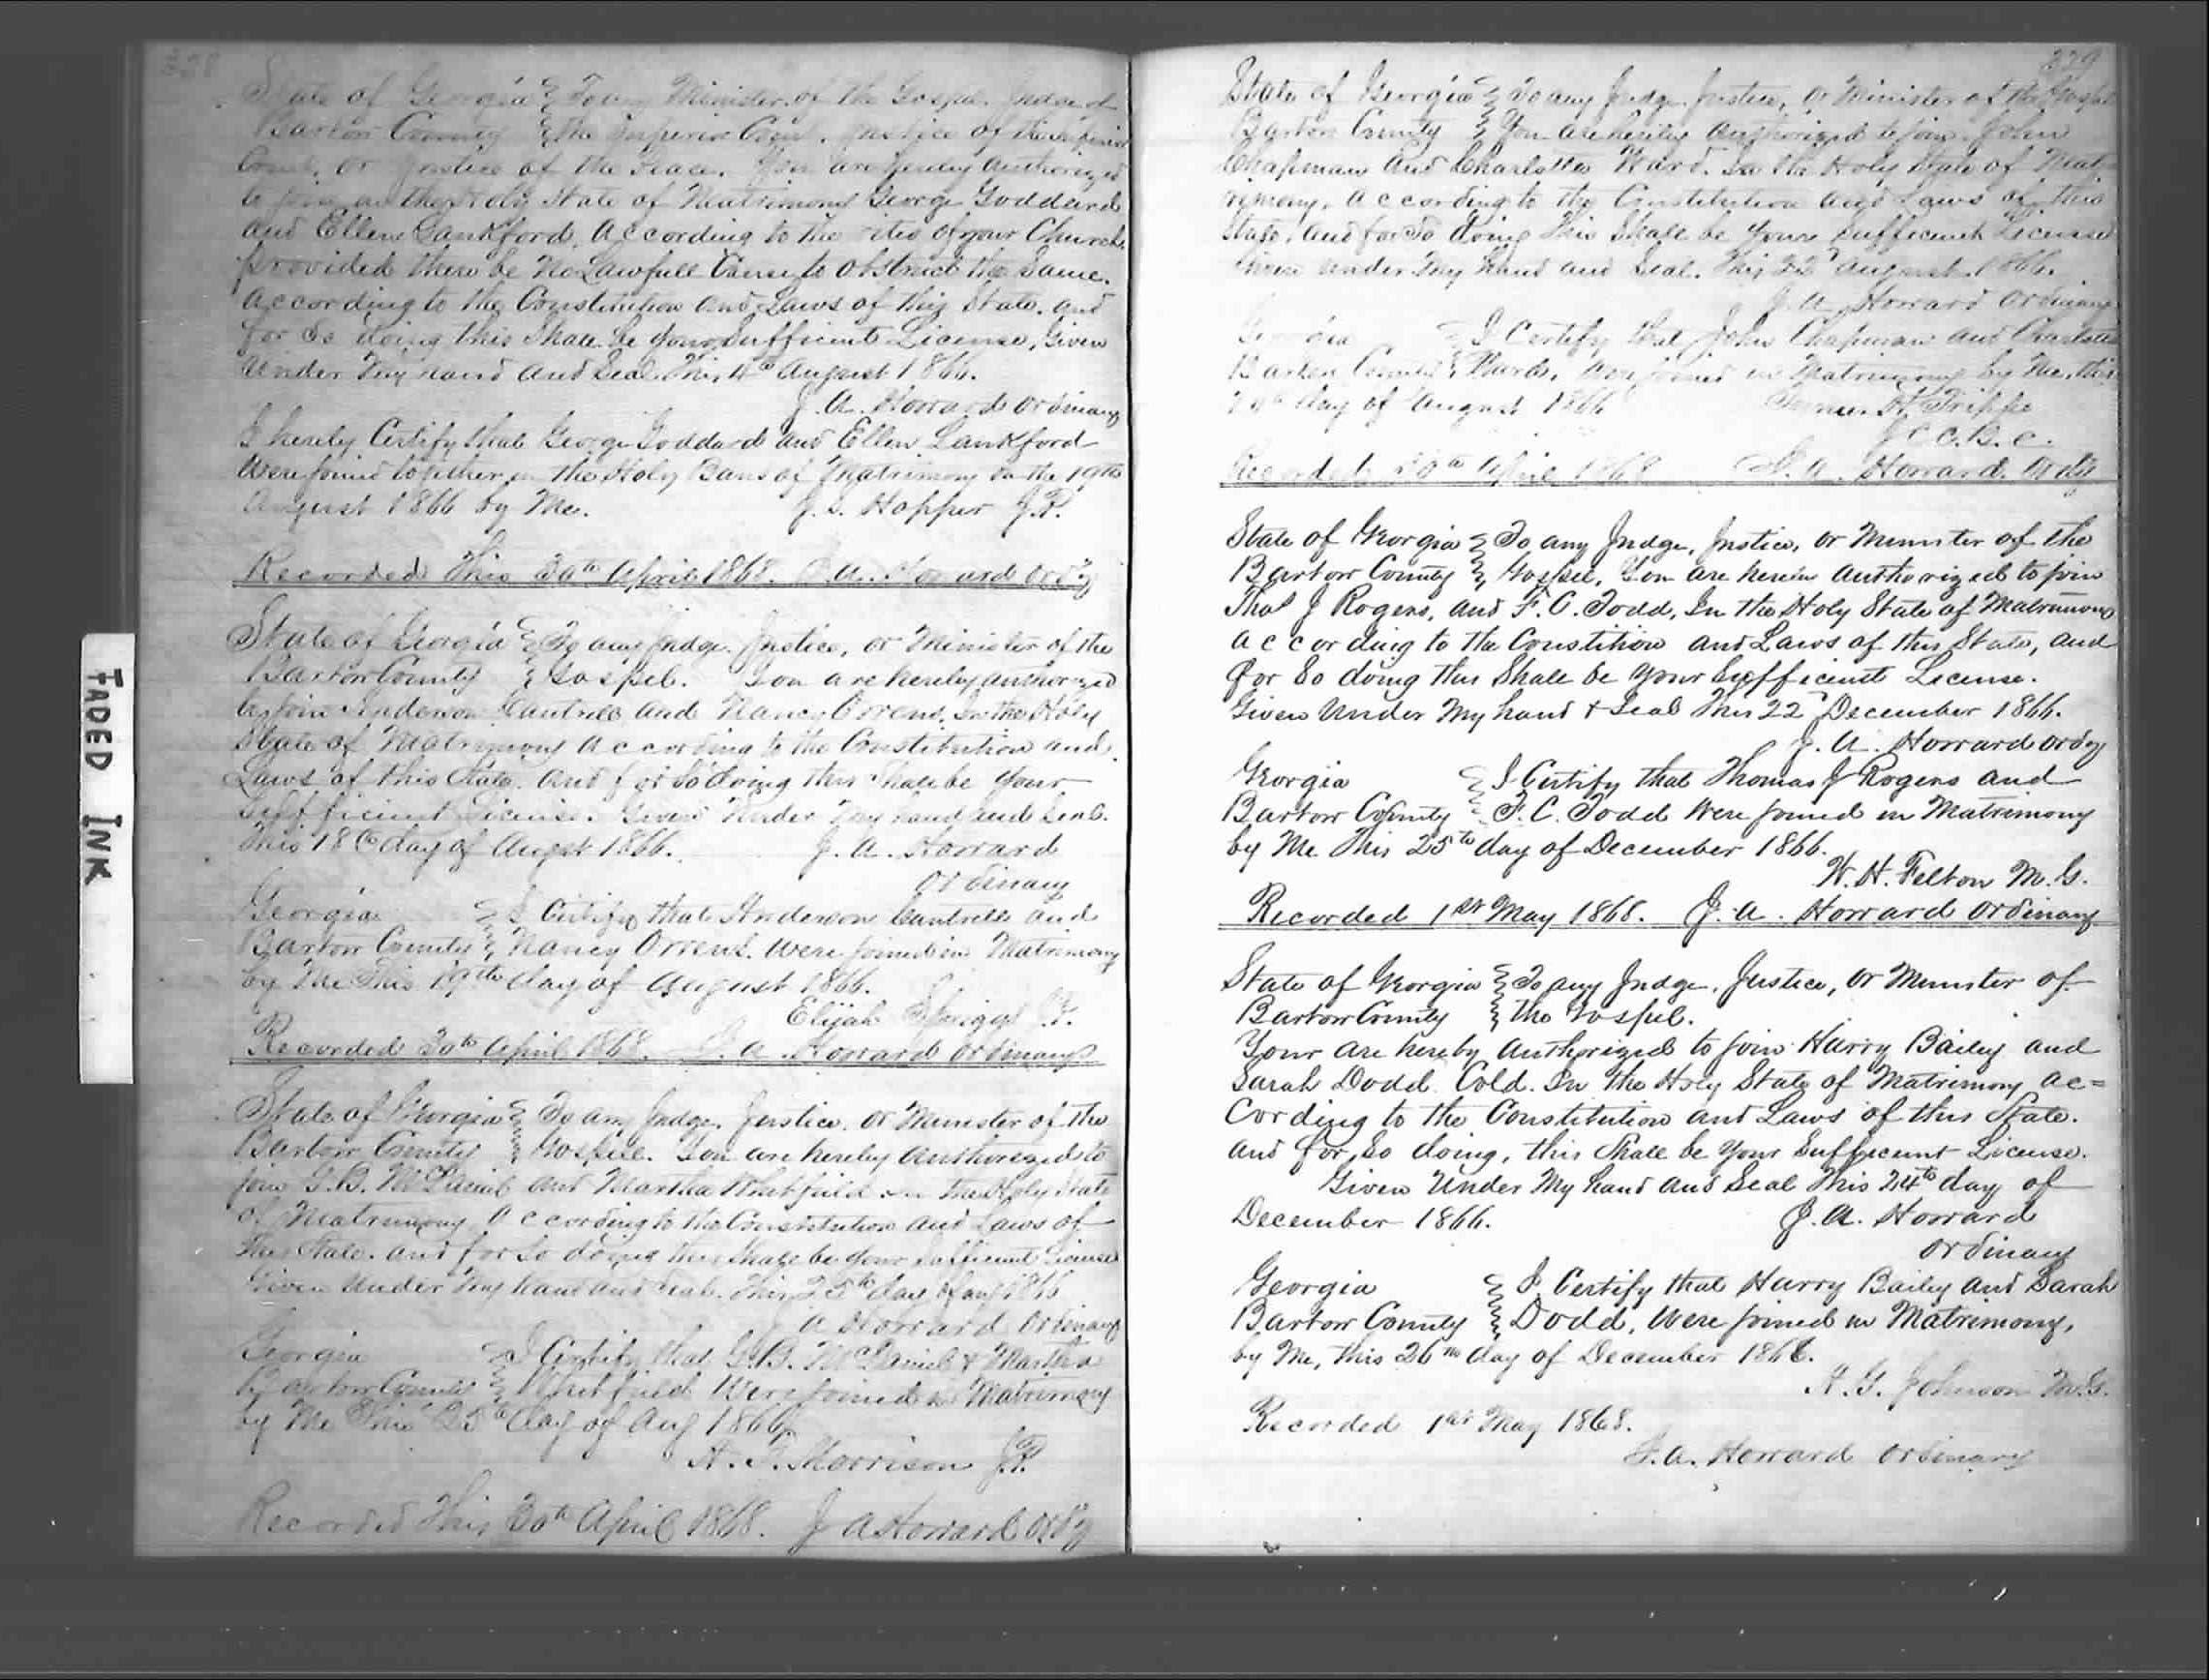 FADED INK
State of Georgia } To any Minister of the Gospel. Judge of
Bartow County } the Superior Court. Justice of the Inferior
Court, or Justice of the Peace. You are hereby Authorized
to join in the Holy State of Matrimony George Goddard
and Ellen Lankford, according to the rites of your Church
provided there be no Lawfull Cause to obstruct the Same.
according to the Constitution and Laws of this State. and
for So doing this Shall be your Sufficient License, Given
under my hand and Seal This 4th August 1866.
J. A. Howard Ordinary
I hereby Certify that George Goddard and Ellen Lankford
were joined together in the Holy Bans of Matrimony on the 19th
August 1866 by Me. J. S. Hopper J.P.
Recorded This 30th April 1868. J. A. Howard Ordy
State of Georgia } To any Judge, Justice, or Minister of the
Bartow County } Gospel. You are hereby authorized
to join Anderson Cantrell and Nancy Owens, in the Holy
State of Matrimony According to the Constitution and
Laws of this State. and for So doing this Shall be your
Sufficient License. Given Under My hand and Seal.
This 18th day of August 1866. J. A. Howard
Ordinary
Georgia } I Certify that Anderson Cantrell and
Bartow County } Nancy Owens. were joined in Matrimony
by Me This 19th day of August 1866.
Elijah
Recorded 30th April 1868. J. A. Howard Ordinary
State of Georgia } To any Judge, Justice, or Minister of the
Bartow County } Gospell. You are hereby Authorized to
join G.B. McDaniel and Martha Whitfield in the Holy State
of Matrimony According to the Constitution and Laws of
this State. and for So doing this Shall be your Sufficient License
Given Under my hand and Seal. This 25th day of Aug 1866
J A Howard Ordinary
Georgia } I Certify that G.B. McDaniel & Martha
Bartow County } Whitfield Were joined in Matrimony
by Me This 25th day of Aug 1866
A. F. Morrison J.P.
Recorded This 30th April 1868. J A Howard Ordy
379
State of Georgia } To any Judge, Justice, or Minister of the Gospel
Bartow County } You are hereby Authorized to join John
Chapman and Charlotte Ward. In the Holy State of Mat-
rimony, According to the Constitution and Laws of this
State, and for So doing This Shall be Your Sufficient License
Given under My hand and Seal. This 22d August 1866.
J. A. Howard Ordinary
Georgia } I Certify that John Chapman and Charlotte
Bartow County } Ward, Were joined in Matrimony by Me, this
day of August 1866 Trippe
J C C. B. C.
Recorded 30th April 1868 J. A. Howard Ordy
State of Georgia } To any Judge, Justice, or Minister of the
Bartow County } Gospel. You are herein Authorized to join
Thos J Rogers, and F. C. Todd, In the Holy State of Matrimony
according to the Constition and Laws of this State, and
for So doing this Shall be Your Sufficient License.
Given Under My hand & Seal This 22d December 1866.
J. A. Howard Ordy
Georgia } I Certify that Thomas J Rogers and
Bartow County } F. C. Todd Were joined in Matrimony
by Me This 25th day of December 1866.
W. H. Felton M.G.
Recorded 1st May 1868. J. A. Howard Ordinary
State of Georgia } To any Judge, Justice, or Minister of
Bartow County } the Gospel.
Your are hereby Authorized to join Harry Bailey and
Sarah Dodd Cold. In the Holy State of Matrimony ac=
cording to the Constitution and Laws of this State.
and for So doing, this Shall be Your Sufficient License.
Given Under My hand and Seal This 24th day of
December 1866. J. A. Howard
Ordinary
Georgia } I Certify that Harry Bailey and Sarah
Bartow County } Dodd, Were joined in Matrimony,
by Me, this 26th day of December 1866.
A. G. Johnson M.G.
Recorded 1st May 1868.
J. A. Howard Ordinary